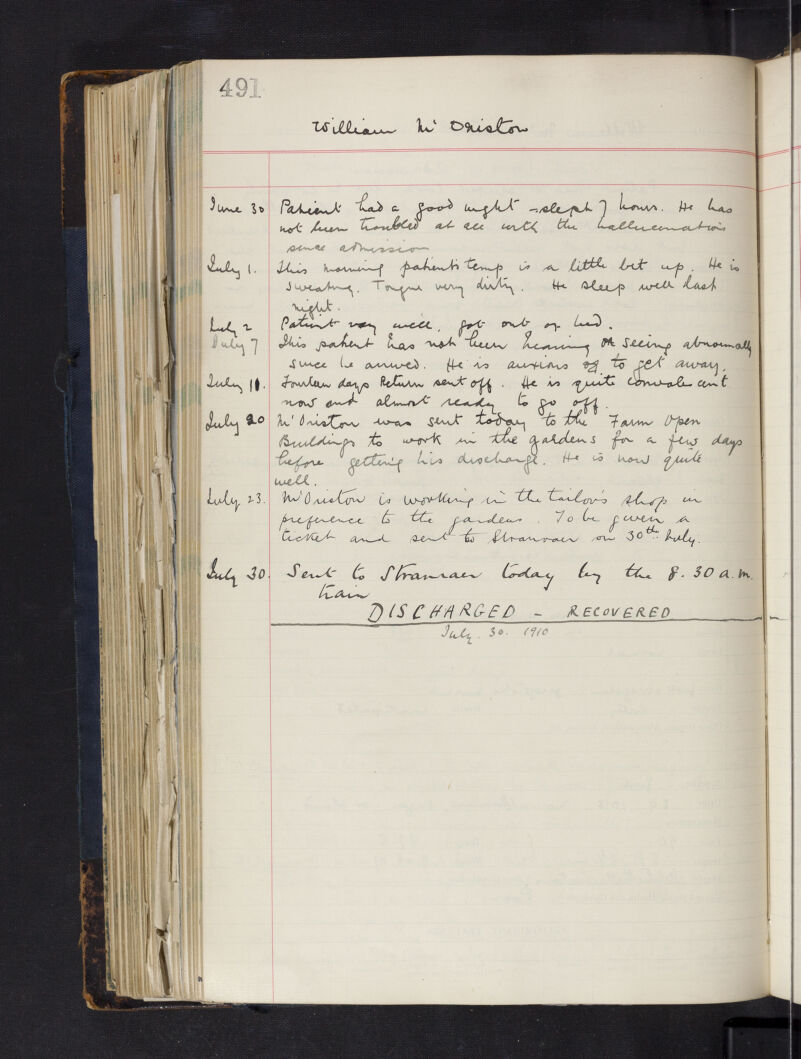 491
William McOriston
June 30 Patient had a good night - slept 7 hours. He has
not been troubled at all with the hallucinations
since admission
July 1. This morning patients temp is a little bit up. He is
sweating. Tongue very dirty. He sleep well last
night.
July 2 Patient very well, got out of bed.
July 7 This patient has not been hearing or seeing abnormally
since he arrived. He is anxious to get away.
July 11. Fourteen days Return sent off. He is quite convalescent
now and almost ready to go off.
July 20 McOriston was sent today to the Farm Open
Buildings to work in the gardens for a few days
before getting his discharge. He is now quite
well.
July 23. McOriston is working in the tailor's shop in
preference to the gardens. To be given a
ticket and sent to Stranraer on 30th July.
July 30. Sent to Stranraer today by the 8.30 a.m.
train
DISCHARGED - RECOVERED
July. 30. 1910